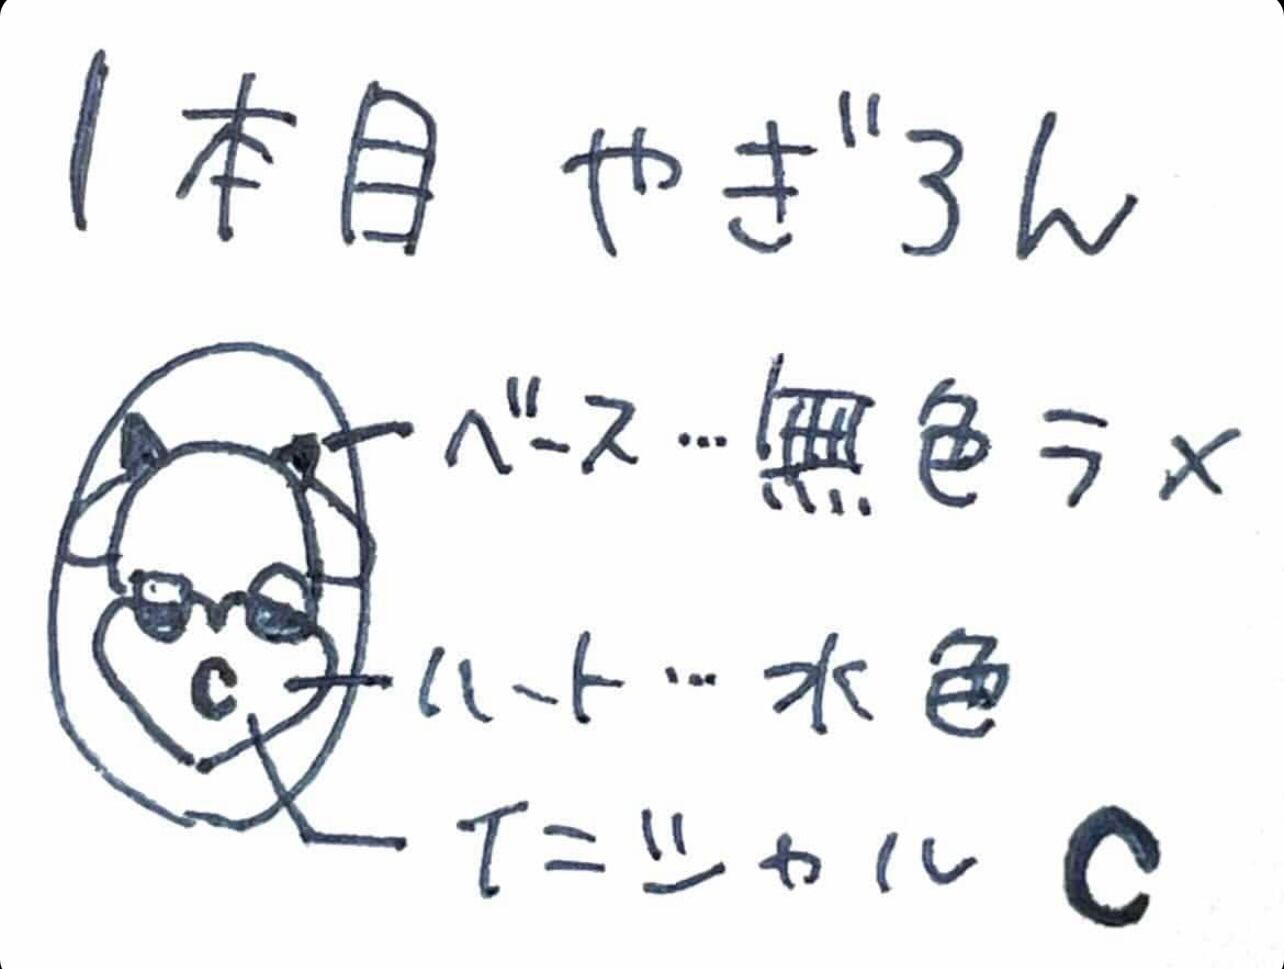 1本目 やぎろん
ベース…無色ラメ
C
ハート…水色
イニシャル C